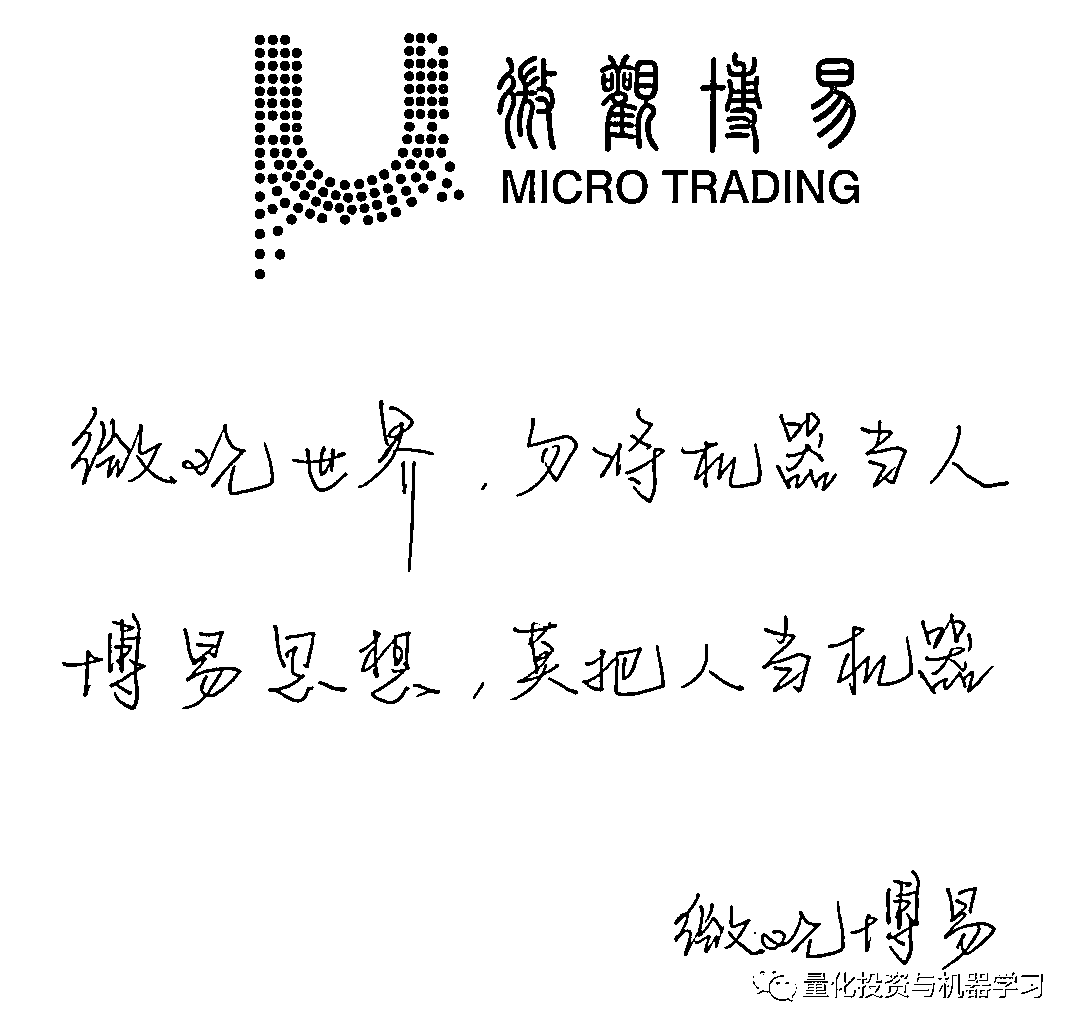 微觀博易
MICRO TRADING
微观世界，勿将机器当人
博易思想，莫把人当机器
微观博易
量化投资与机器学习